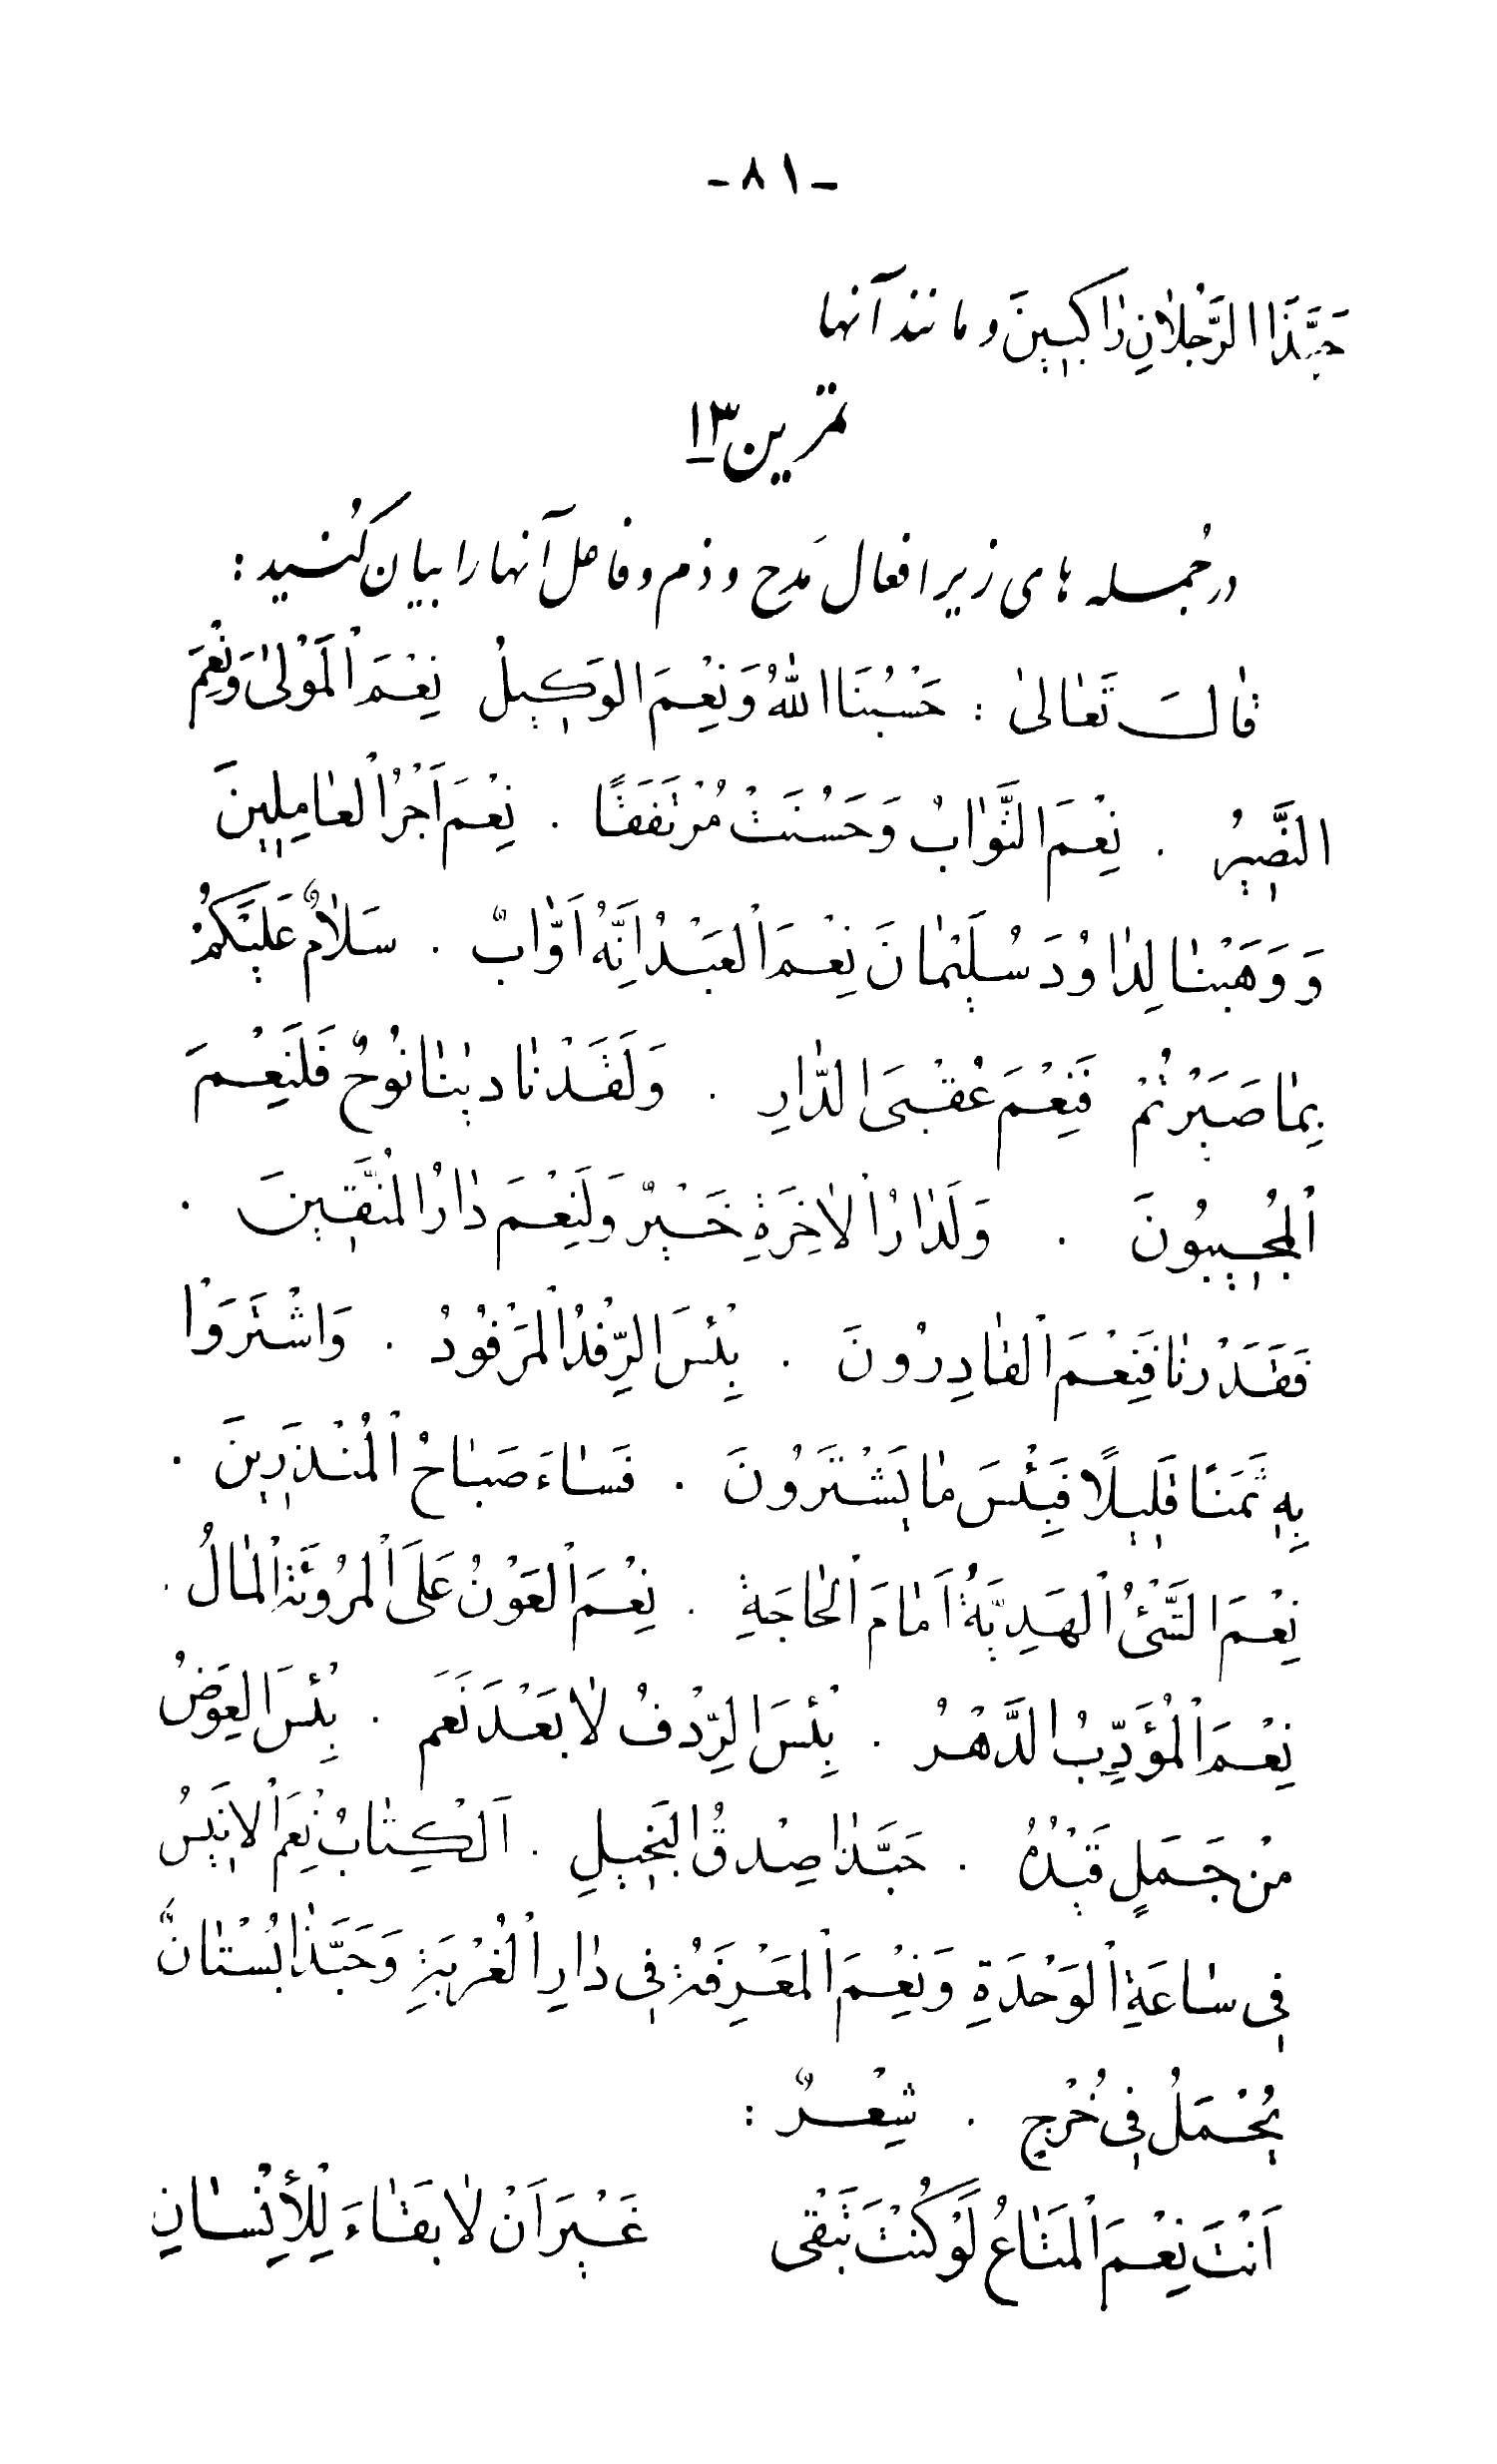 -۸۱-
حَبَّذَا الرَّجُلانِ رٰاكِبَيْنِ و مانند آنها
تمرین ۱۳
در جُمله های زیر افعال مَدح و ذم و فاعل آنها را بیان کُنید :
قٰالَ تَعٰالىٰ : حَسْبُنَا اللّٰهُ وَنِعْمَ الوَكيلُ نِعْمَ الْمَوْلىٰ وَنِعْمَ
النَّصيرُ . نِعْمَ الثَّوٰابُ وَحَسُنَتْ مُرْتَفَقًا . نِعْمَ اَجْرُ الْعٰامِلينَ
وَ وَهَبْنٰا لِدٰاوُدَ سُلَيْمٰانَ نِعْمَ الْعَبْدُ اِنَّهُ اَوّٰابٌ . سَلٰامٌ عَلَيْكُمْ
بِمٰا صَبَرْتُمْ فَنِعْمَ عُقْبَى الدّٰارِ . وَلَقَدْ نٰادينٰا نُوحٌ فَلَنِعْمَ
الْمُجيبُونَ . وَلَدٰارُ الْاٰخِرَةِ خَيْرٌ وَلَنِعْمَ دٰارُ الْمُتَّقينَ .
فَقَدَرْنٰا فَنِعْمَ الْقٰادِرُونَ . بِئْسَ الرِّفْدُ الْمَرْفُودُ . وَاشْتَرَوْا
بِهِ ثَمَنًا قَليلًا فَبِئْسَ مٰا يَشْتَرُونَ . فَسٰاءَ صَبٰاحُ الْمُنْذَرينَ .
نِعْمَ الشَّىْءُ الْهَدِيَّةُ اَمٰامَ الْحٰاجَةِ . نِعْمَ الْعَوْنُ عَلَى الْمُرُوئَةِ الْمٰالُ .
نِعْمَ الْمُؤَدِّبُ الدَّهْرُ . بِئْسَ الرِّدْفُ لٰا بَعْدَ نَعَم . بِئْسَ العِوَضُ
مِنْ جَمَلٍ قَيْدُهُ . حَبَّذٰا صِدْقُ البَخيلِ . اَلْكِتٰابُ نِعْمَ الْاَنيسُ
فى سٰاعَةِ الْوَحْدَةِ وَنِعْمَ الْمَعْرِفَةُ فى دٰارِ الْغُرْبَةِ وَحَبَّذٰا بُسْتٰانٌ
يُحْمَلُ فى خُرْجٍ . شِعْرٌ :
اَنْتَ نِعْمَ الْمَتٰاعُ لَوْ كُنْتَ تَبْقى غَيْرَ اَنْ لٰا بَقٰاءَ لِلْأِنْسٰانِ